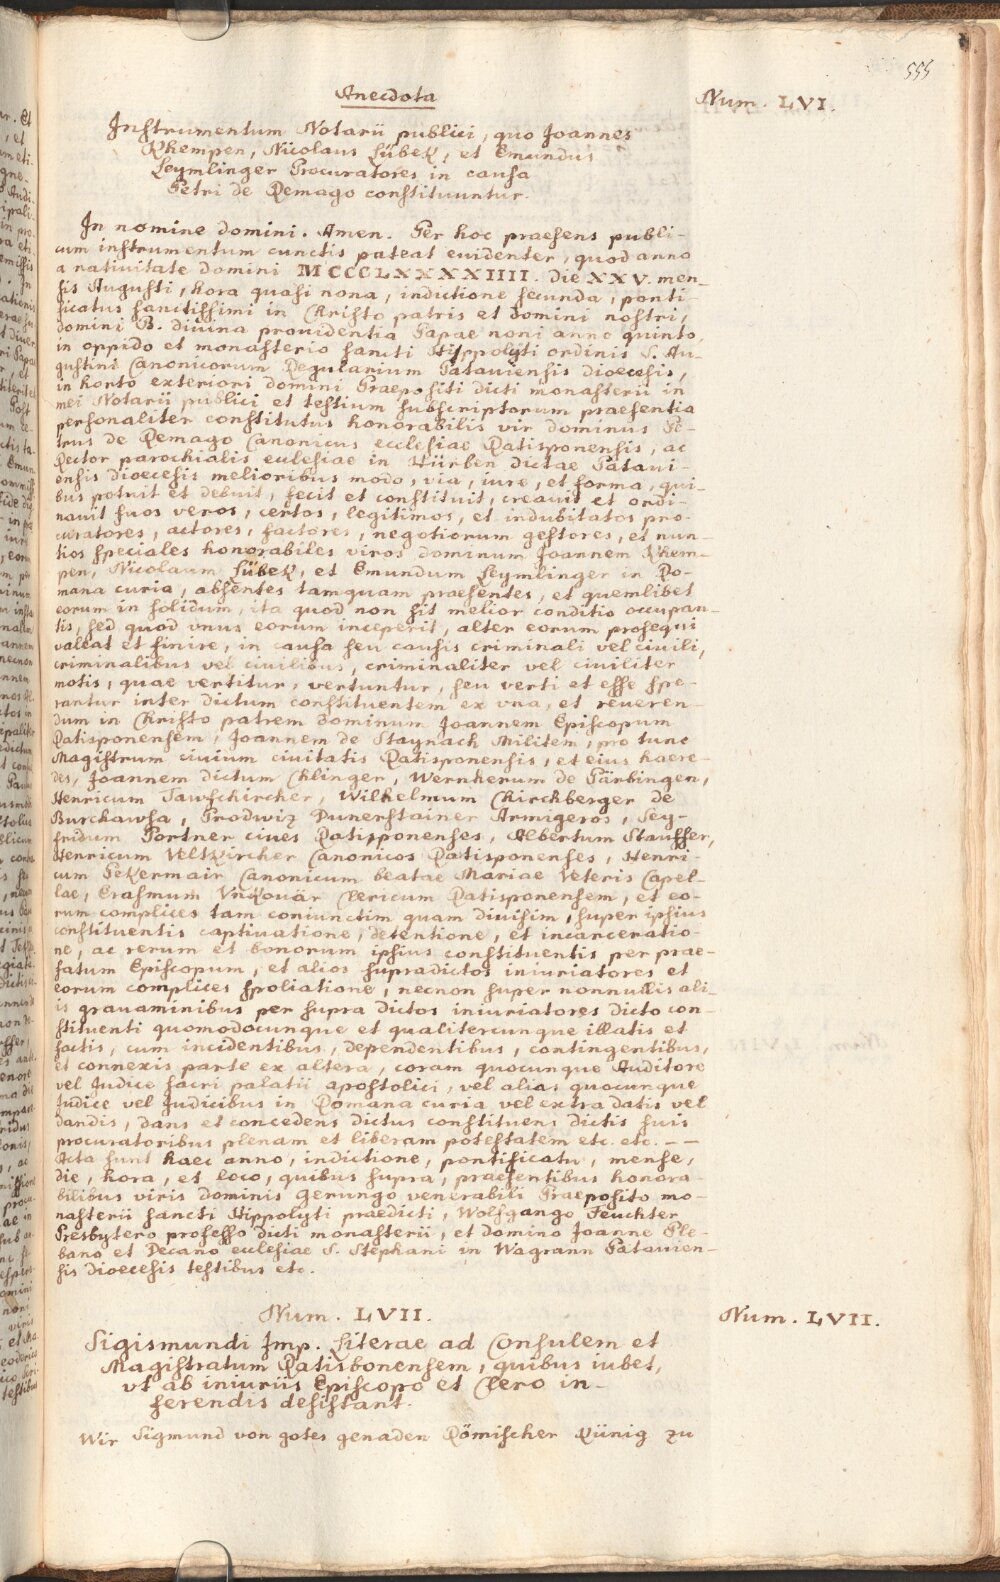 555
Anecdota
Num. LVI.
Instrumentum Notarii publici, quo Joannes
Khempen, Nicolaus Lübek, et Emundus
Leymlinger Procuratores in causa
Petri de Remago constituuntur.
In nomine Domini. Amen. Per hoc praesens publi-
cum instrumentum cunctis pateat euidenter, quod anno
a natiuitate Domini MCCCLXXXXIIII. Die XXV. men-
sis Augusti, hora quasi nona, indictione secunda, ponti-
ficatus sanctissimi in Christo patris et Domini nostri,
Domini B. diuina prouidentia Papae noni anno quinto,
in oppido et monasterio sancti Hyppolyti ordinis S. Au-
gustini Canonicorum Regularium Patauiensis dioecesis,
in horto exteriori domini Praepositi dicti monasterii in
mei Notarii publici et testium subscriptorum praesentia
personaliter constitutus honorabilis vir dominus Pe-
trus de Remago Canonicus ecclesiae Ratisponensis, ac
Rector parochialis ecclesiae in Hürben dictae Pataui-
ensis dioecesis melioribus modo, via, iure, et forma, qui-
bus potuit et debuit, fecit et constituit, creauit et ordi-
nauit suos veros, certos, legitimos, et indubitatos pro-
curatores, actores, factores, negotiorum gestores, et nun-
tios speciales honorabiles viros dominum Joannem Khem-
pen, Nicolaum Lübek, et Emundum Leymlinger in Ro-
mana curia, absentes tamquam praesentes, et quemlibet
eorum in solidum, ita quod non sit melior conditio occupan-
tis, sed quod vnus eorum inceperit, alter eorum prosequi
valeat et finire, in causa seu causis criminali vel ciuili,
criminalibus vel ciuilibus, criminaliter vel ciuiliter
motis, quae vertitur, vertuntur, seu verti et esse spe-
rantur inter dictum constituentem ex vna, et reueren-
dum in Christo patrem dominum Joannem Episcopum
Ratisponensem, Joannem de Staynach Militem, pro tunc
Magistrum ciuium ciuitatis Ratisponensis, et eius haere-
des, Joannem dictum Clinger, Wernherum de Pärbingen,
Henricum Tawschircher, Wilhelmum Chirchberger de
Burckawsa, Prodwiz Punerstainer Armigeros, Sey-
fridum Portner ciues Ratisponenses, Albertum Stauffer,
Henricum Veltkircher Canonicos Ratisponenses, Henri-
cum Pekermair Canonicum beatae Mariae Veteris Capel-
lae, Erasmum Vnkouär Clericum Ratisponensem, et eo-
rum complices tam coniunctim quam diuisim, super ipsius
constituentis captiuatione, detentione, et incarceratio-
ne, ac rerum et bonorum ipsius constituentis per prae-
fatum Episcopum, et alios supradictos iniuriatores et
eorum complices spoliatione, necnon super nonnullis ali-
is grauaminibus per supra dictos iniuriatores dicto con-
stituenti quomodocunque et qualitercunque illatis et
factis, cum incidentibus, dependentibus, contingentibus,
et connexis parte ex altera, coram quocunque Auditore
vel Judice sacri palatii apostolici, vel alias quocunque
Judice vel Judicibus in Romana curia vel extra datis vel
dandis, dans et concedens dictus constituens dictis suis
procuratoribus plenam et liberam potestatem etc. etc. — —
Acta sunt haec anno, indictione, pontificatu, mense,
die, hora, et loco, quibus supra, praesentibus honora-
bilibus viris dominis Gerungo venerabili Praeposito mo-
nasterii sancti Hippolyti praedicti, Wolfgango Feuchter
Presbytero professo dicti monasterii, et domino Joanne Ple-
bano et Decano ecclesiae S. Stephani in Wagrann Patauien-
sis dioecesis testibus etc.
Num. LVII.
Num. LVII.
Sigismundi Imp. Literae ad Consulem et
Magistratum Ratisbonensem, quibus iubet,
vt ab iniuriis Episcopo et Clero in-
ferendis desistant.
Wir Sigmund von gotes genaden Römischer Künig zu